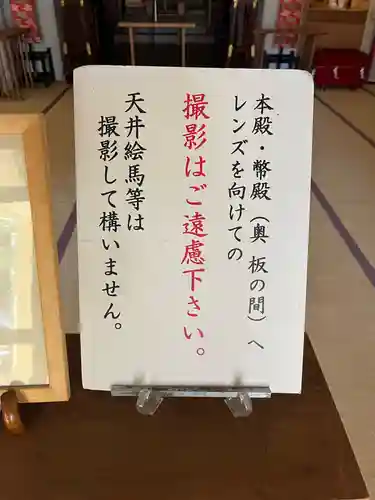 本殿・幣殿（奥 板の間）へ
レンズを向けての
撮影はご遠慮下さい。
天井絵馬等は
撮影して構いません。